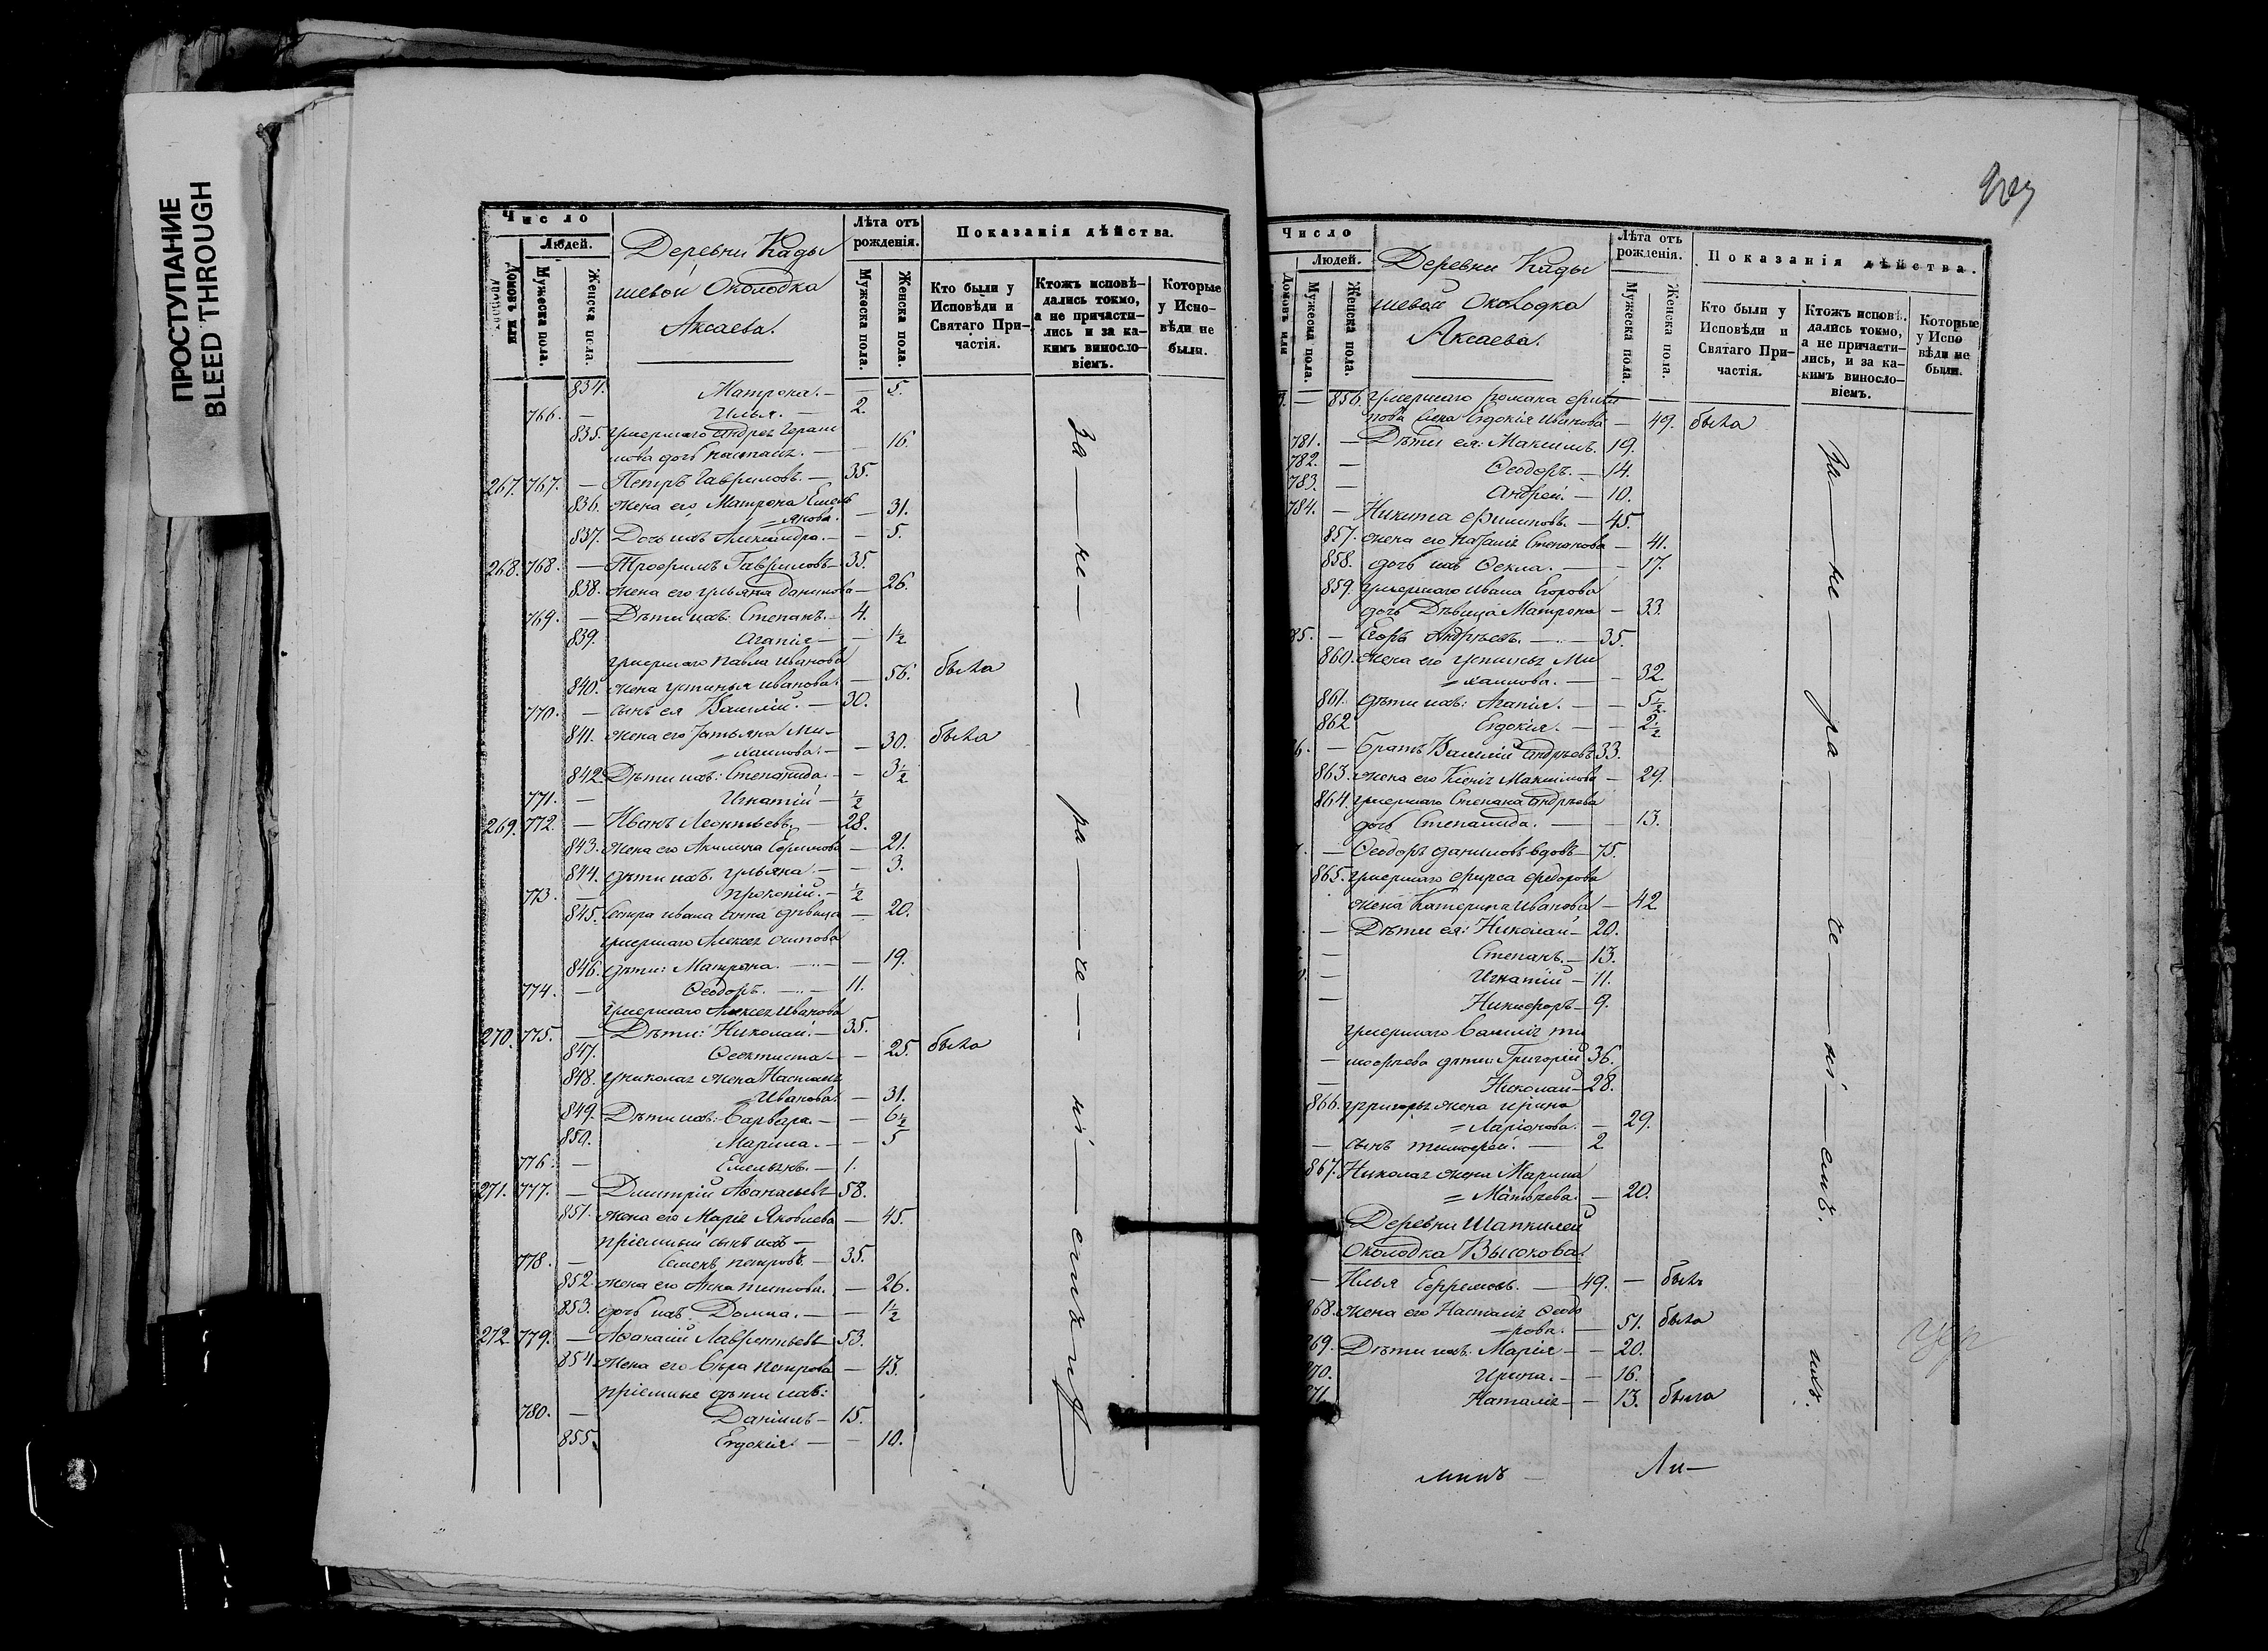 ПРОСТУПАНИЕ
BLEED THROUGH
Число
Людей.
Домовъ или
Мужеска пола.
Женска пола.
Деревни Кады
шевой Околодка
Аксаева.
Лѣта отъ
рожденія.
Мужеска пола.
Женска пола.
Показанія дѣйства.
Кто были у
Исповѣди и
Святаго При-
частія.
Ктожъ исповѣ-
дались токмо,
а не причасти-
лись и за ка-
кимъ виносло-
віемъ.
Которые
у Испо-
вѣди не
были.
834. Матрона. — — 5.
766. — Илья. — 2.
835. умершаго Андрея Гераси
мова дочь Настасія. — — 16.
267. 767. — Петръ Гавриловъ. — 35.
836. жена его Матрона Емель
= янова. — 31.
837. Дочь ихъ Александра. — — 5.
268. 768. — Трофимъ Гавриловъ — 35.
838. жена его Ульяна Данилова — 26.
769. — Дѣти ихъ: Степанъ. — 4.
839. Агапія — — 1½
умершаго Павла Иванова
840. жена Устинья Иванова. — 56. была
770. — сынъ ея Василій. — 30.
841. жена его Татьяна Ми-
= хаилова. — — 30. была
842. Дѣти ихъ: Степанида. — — 3½
771. — Игнатій — ½
269. 772. — Иванъ Леонтьевъ. — 28.
843. жена его Акилина Ефимова — 21.
844. дѣти ихъ. Ульяна. — — 3.
773. — Прокопій. — ½
845. Сестра Ивана Анна дѣвица — 20.
умершаго Алексея Осипова
846. дѣти: Матрона. — — 19.
774. — Ѳеодоръ. — 11.
умершаго Алексея Иванова
270. 775. — Дѣти: Николай. — 35.
847. Ѳеоктиста — — 25. была
848. у Николая жена Настасія
Иванова. — 31.
849. Дѣти ихъ: Варвара. — — 6½
850. Марина. — — 5
776. — Емельянъ. — 1.
271. 777. — Дмитрій Аѳанасьевъ 58.
851. жена его Марія Яковлева — 45.
пріемный сынъ ихъ —
778. — Семенъ Петровъ. — 35.
852. жена его Анна Титова. — 26.
853. дочь ихъ Домна. — — 1½
272. 779. — Аѳанасій Лаврентьевъ 53.
854. жена его Вѣра Петрова — 43.
пріемные дѣти ихъ:
780. — Даніилъ — 15.
855. Евдокія. — — 10.
За — не — ра — че — ні — емъ
Число
Людей.
Домовъ или
Мужеска пола.
Женска пола.
Деревни Кады
шевой Околодка
Аксаева.
Лѣта отъ
рожденія.
Мужеска пола.
Женска пола.
Показанія дѣйства.
Кто были у
Исповѣди и
Святаго При-
частія.
Ктожъ исповѣ-
дались токмо,
а не причасти-
лись, и за ка-
кимъ виносло-
віемъ.
Которые
у Испо
вѣди не
были.
— 856. умершаго Романа Филип
пова жена Евдокія Иванова — 49. была
781. — Дѣти ея: Максимъ. 19.
782. — Ѳеодоръ. — 14.
783. — Андрей. — 10.
784. — Никита Филиповъ. — 45.
857. жена его Наталія Степанова — 41.
858. дочь ихъ Ѳекла. — — 17.
859. умершаго Ивана Егорова
дочь Дѣвица Матрона — 33.
85. — Егоръ Андрѣевъ. — 35.
860. жена его Устинья Ми
= хаилова. — — 32.
861. дѣти ихъ: Агапія. — — 5½
862 Евдокія. — — 2½
6. — братъ Василій Андрѣевъ 33.
863. жена его Ксенія Максимова — 29.
864. умершаго Степана Андрѣева
дочь Степанида. — — 13.
— Ѳеодоръ Даниловъ вдовъ — 75.
865. умершаго Фирса Федорова
жена Катерина Иванова — 42
— Дѣти ея: Николай — 20.
— Степанъ. — 13.
— Игнатій — 11.
— Никифоръ — 9.
умершаго Василія Ти
— мофѣева дѣти: Григорій 36.
— Николай — 28.
866. у Григорья жена Ирина
= Ларіонова. — 29.
— сынъ Тимофей. — 2
867. Николая жена Марина
= Матвѣева. — 20.
Деревни Шапкилей
Околодка Высокова.
— Илья Ефремовъ. — 49. — былъ
868. жена его Настасія Ѳеодо
= рова. — 51. была
869. Дѣти ихъ. Марія — — 20.
870. Ирина. — — 16.
871. Наталія — — 13. была
За — не — ра — че — ні — емъ.